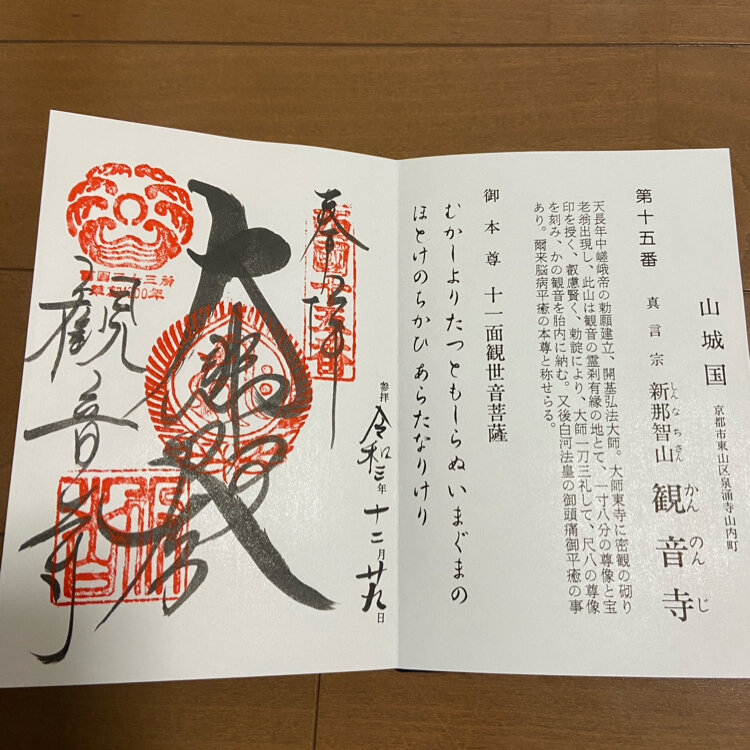 山城国
京都市東山区泉涌寺山内町
第十五番
真言宗 新那智山 観音寺
しんなちさん かんのんじ
天長年中嵯峨帝の勅願建立、開基弘法大師。大師東寺に密観の砌り
老翁出現し、此山は観音の霊刹有縁の地とて、一寸八分の尊像と宝
印を授く、叡慮賢く、勅諚により、大師一刀三礼して、尺八の尊像
を刻み、かの観音を胎内に納む。又後白河法皇の御頭痛御平癒の事
あり。爾来脳病平癒の本尊と称せらる。
御本尊 十一面観世音菩薩
むかしよりたつともしらぬいまぐまの
ほとけのちかひあらたなりけり
奉拝
西国十五番
参拝 令和三年十二月廿九日
大悲殿
西国三十三所
草創1300年
観音寺